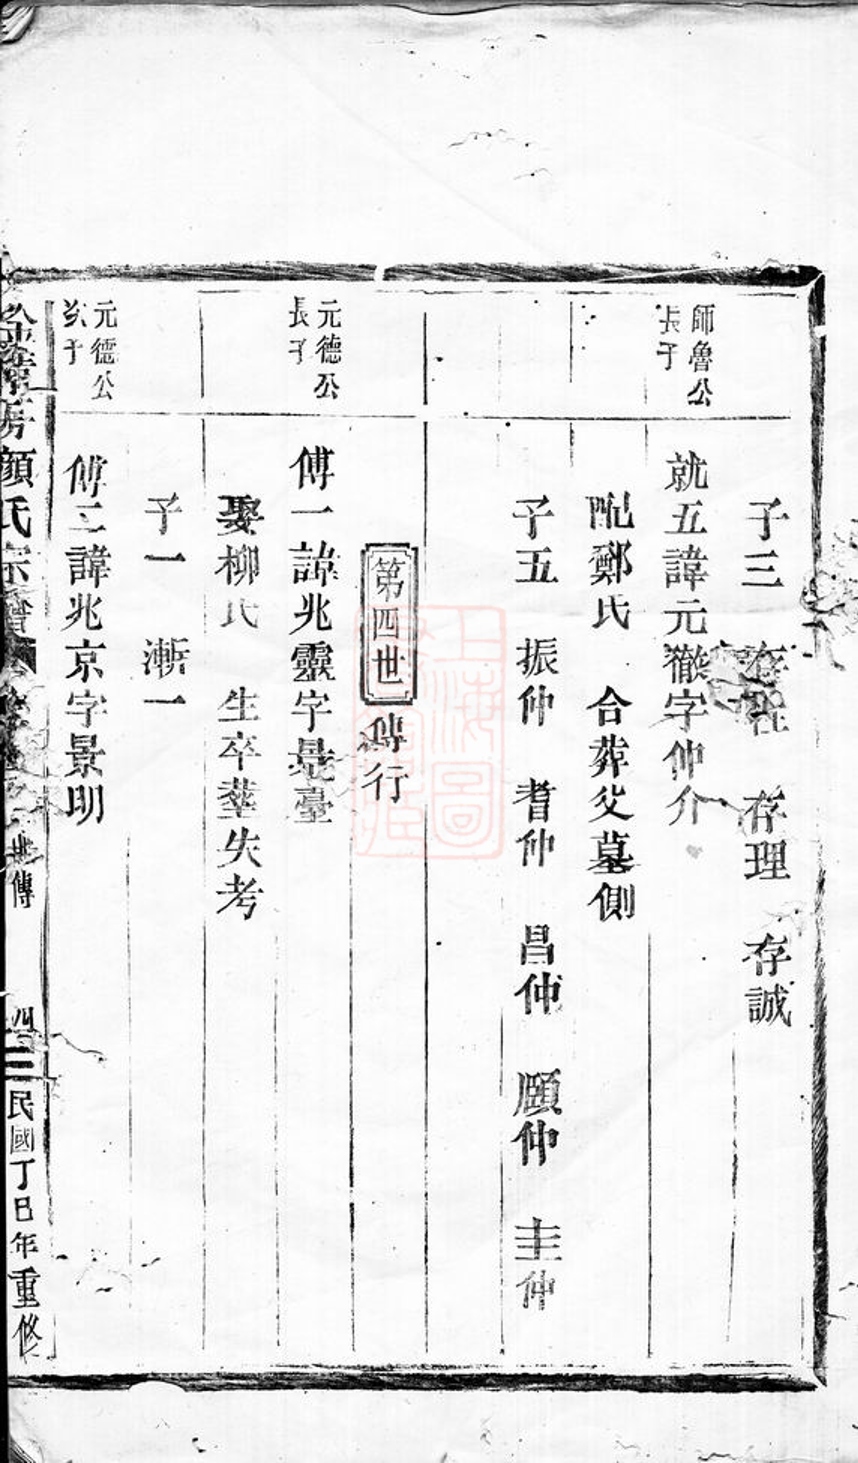 子三 存 存理 存誠
師魯公
長子
就五諱元徽字仲介
配鄭氏 合葬父墓側
子五 振仲 耆仲 昌仲 頤仲 圭仲
第四世 傅行
元德公
長子
傅一諱兆靈字景臺
娶柳氏 生卒塟失考
子一 漸一
元德公
次子
傅二諱兆京字景明
顏氏宗譜
世傳 四 民國丁巳年重修
上海圖